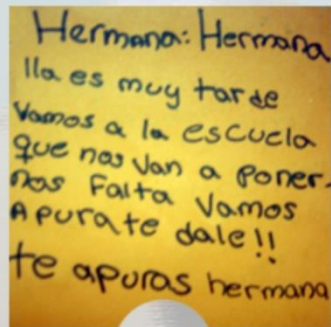 Hermana: Hermana
lla es muy tarde
Vamos a la escuela
que nos van a poner
nos Falta Vamos
Apurate dale!!
te apuras hermana